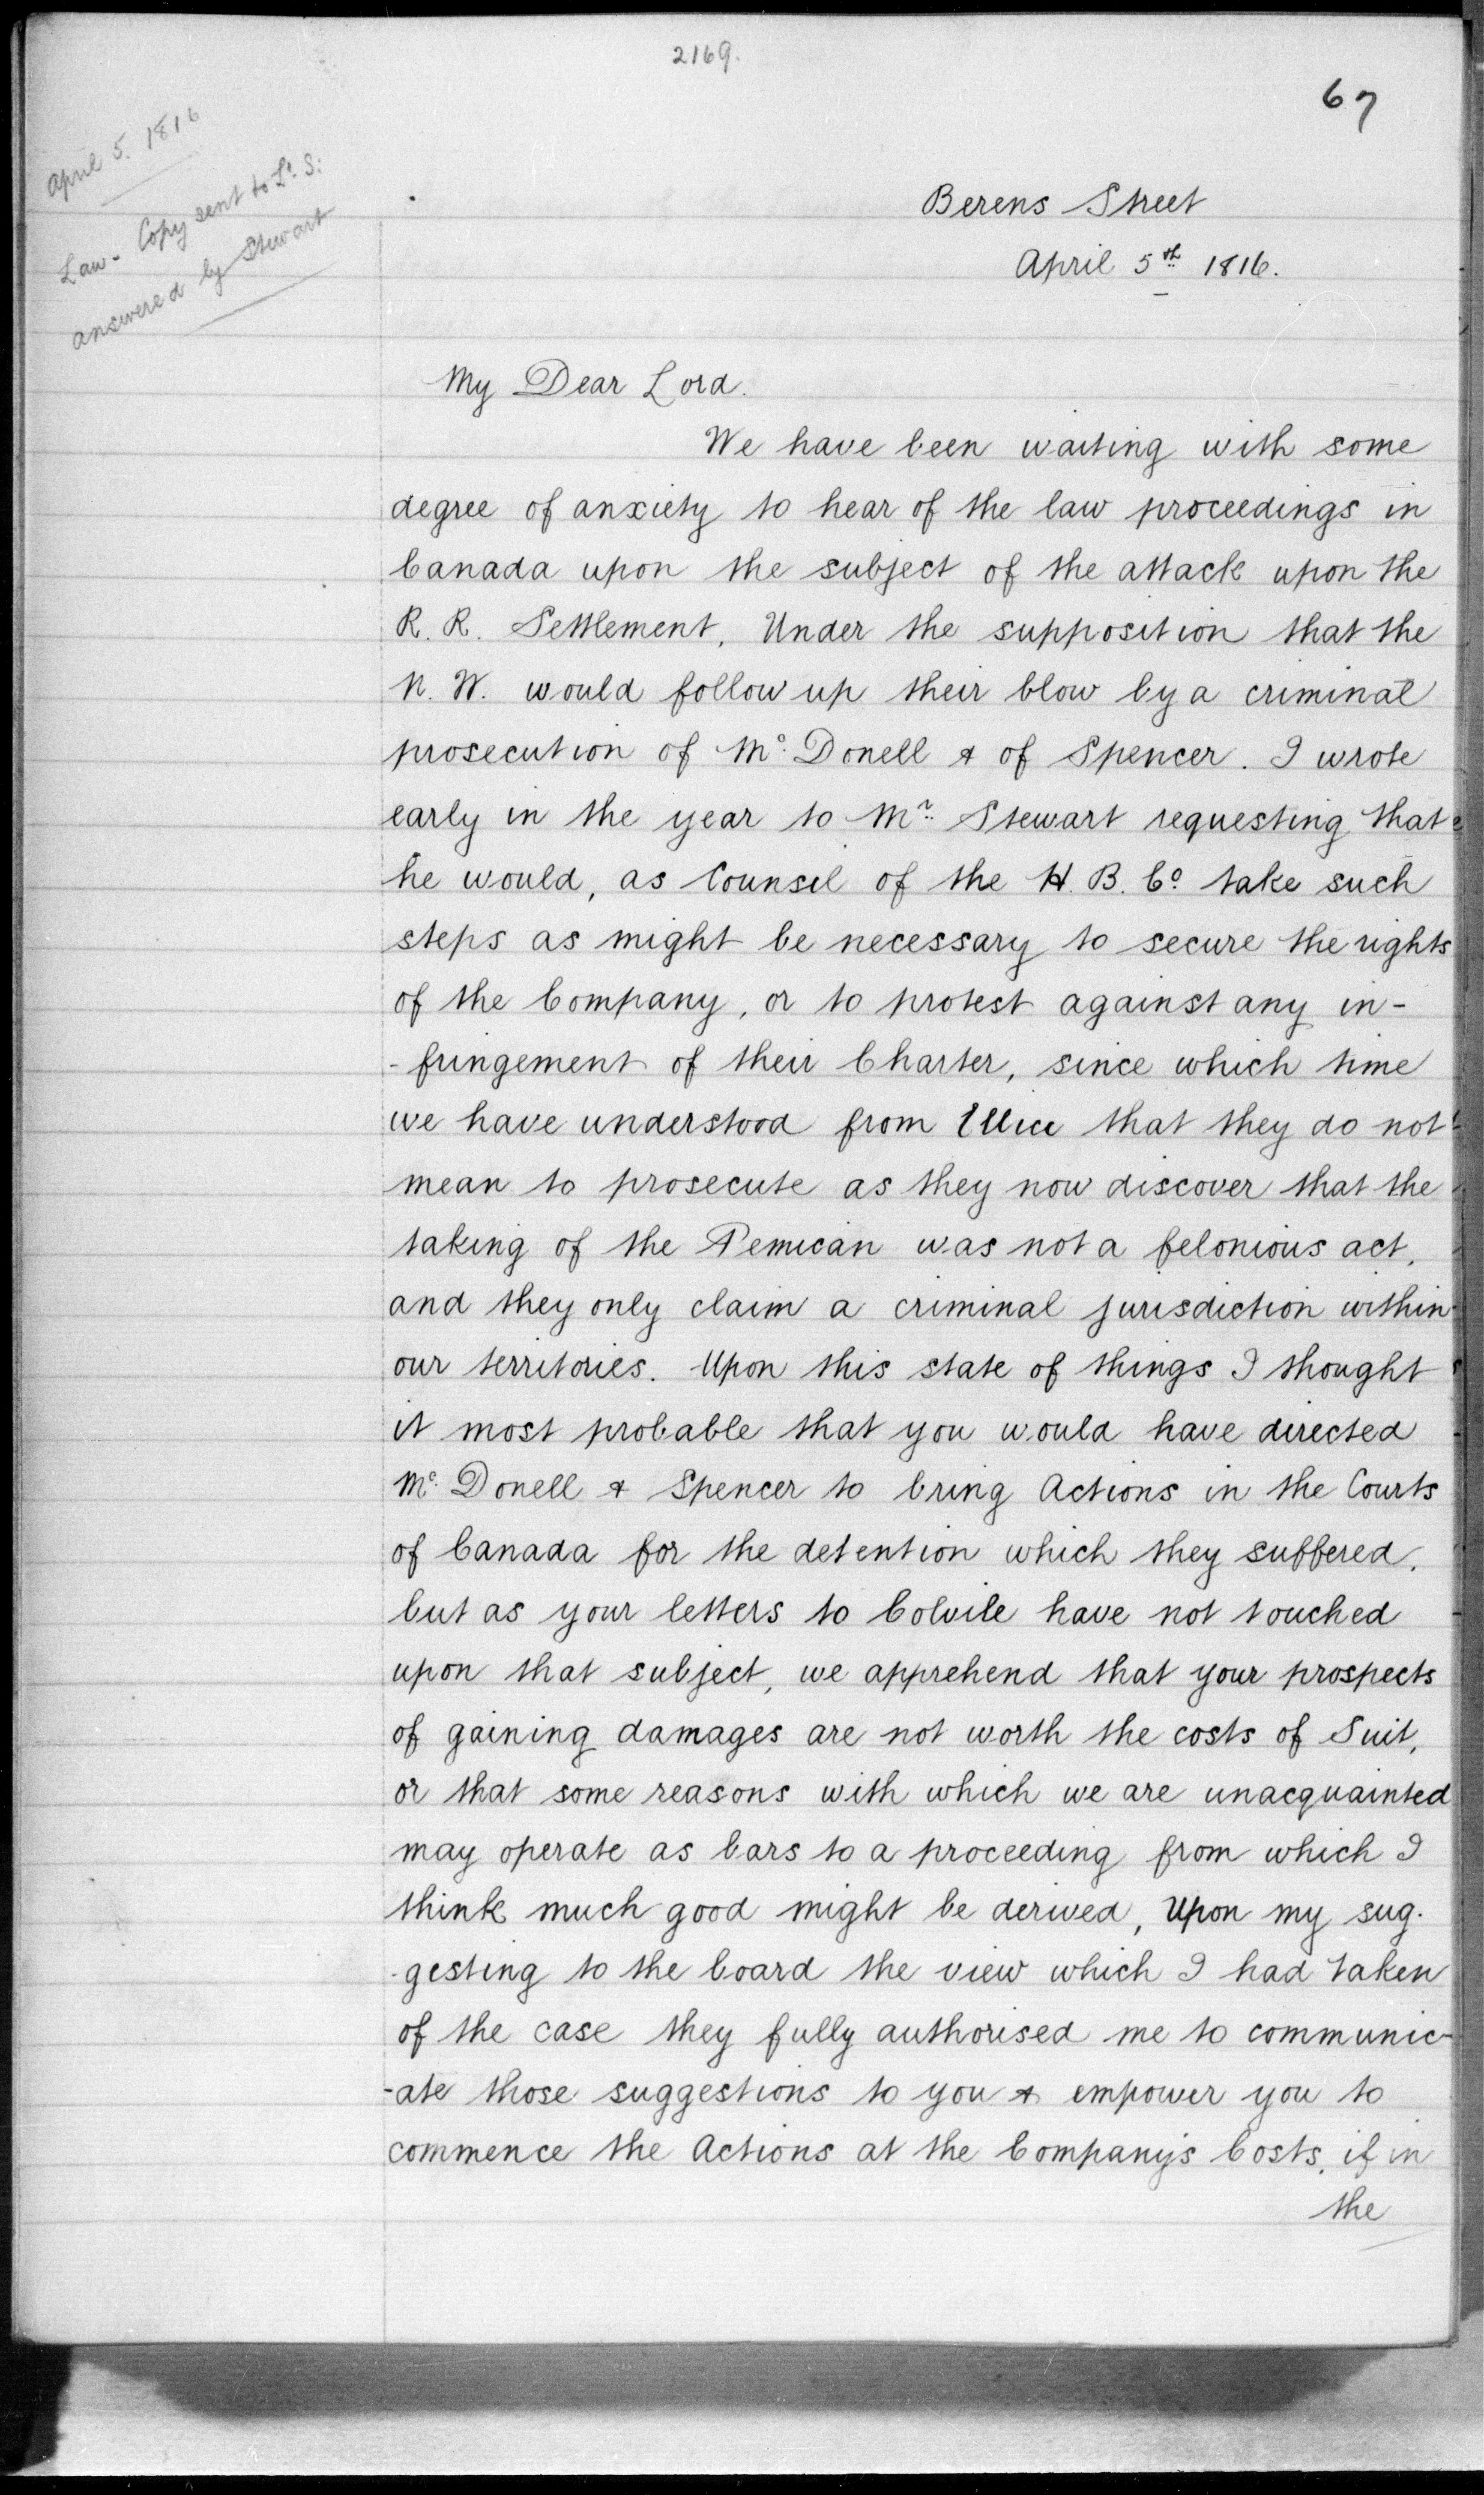 2169.
67
April 5. 1816
Law - Copy sent to Ld. S:
answered by Stewart
Berens Street
April 5th 1816.
My Dear Lord.
We have been waiting with some
degree of anxiety to hear of the law proceedings in
Canada upon the subject of the attack upon the
R. R. Settlement. Under the supposition that the
N. W. would follow up their blow by a criminal
prosecution of Mc. Donell & of Spencer. I wrote
early in the year to Mr. Stewart requesting that
he would, as Counsel of the H. B. Co take such
steps as might be necessary to secure the rights
of the Company, or to protest against any in-
-fringement of their Charter, since which time
we have understood from Ellice that they do not
mean to prosecute as they now discover that the
taking of the Pemican was not a felonious act,
and they only claim a criminal jurisdiction within
our territories. Upon this state of things I thought
it most probable that you would have directed
Mc. Donell & Spencer to bring Actions in the Courts
of Canada for the detention which they suffered,
but as your letters to Colvile have not touched
upon that subject, we apprehend that your prospects
of gaining damages are not worth the costs of Suit,
or that some reasons with which we are unacquainted
may operate as bars to a proceeding from which I
think much good might be derived, Upon my sug-
-gesting to the board the view which I had taken
of the case they fully authorised me to communic-
-ate those suggestions to you & empower you to
commence the Actions at the Company's Costs, if in
the